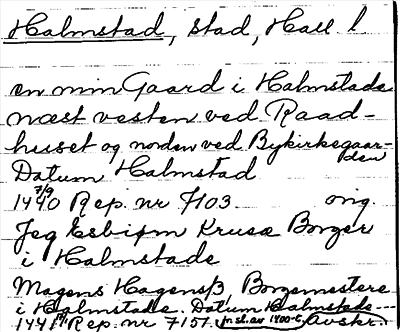 Halmstad, stad, Hall l
en min Gaard i Halmstade
næst vesten ved Raad-
huset og norden ved Bykirkegaar-
den
Datum Halmstad
7/9
1440 Rep. nr 7103 orig.
Jeg Esbiørn Kruse Borger
i Halmstade
Magens Hagenss, Borgemestere
i Halmstade. Datum Halmstade---
1441 Rep. nr 7157. Avskr.